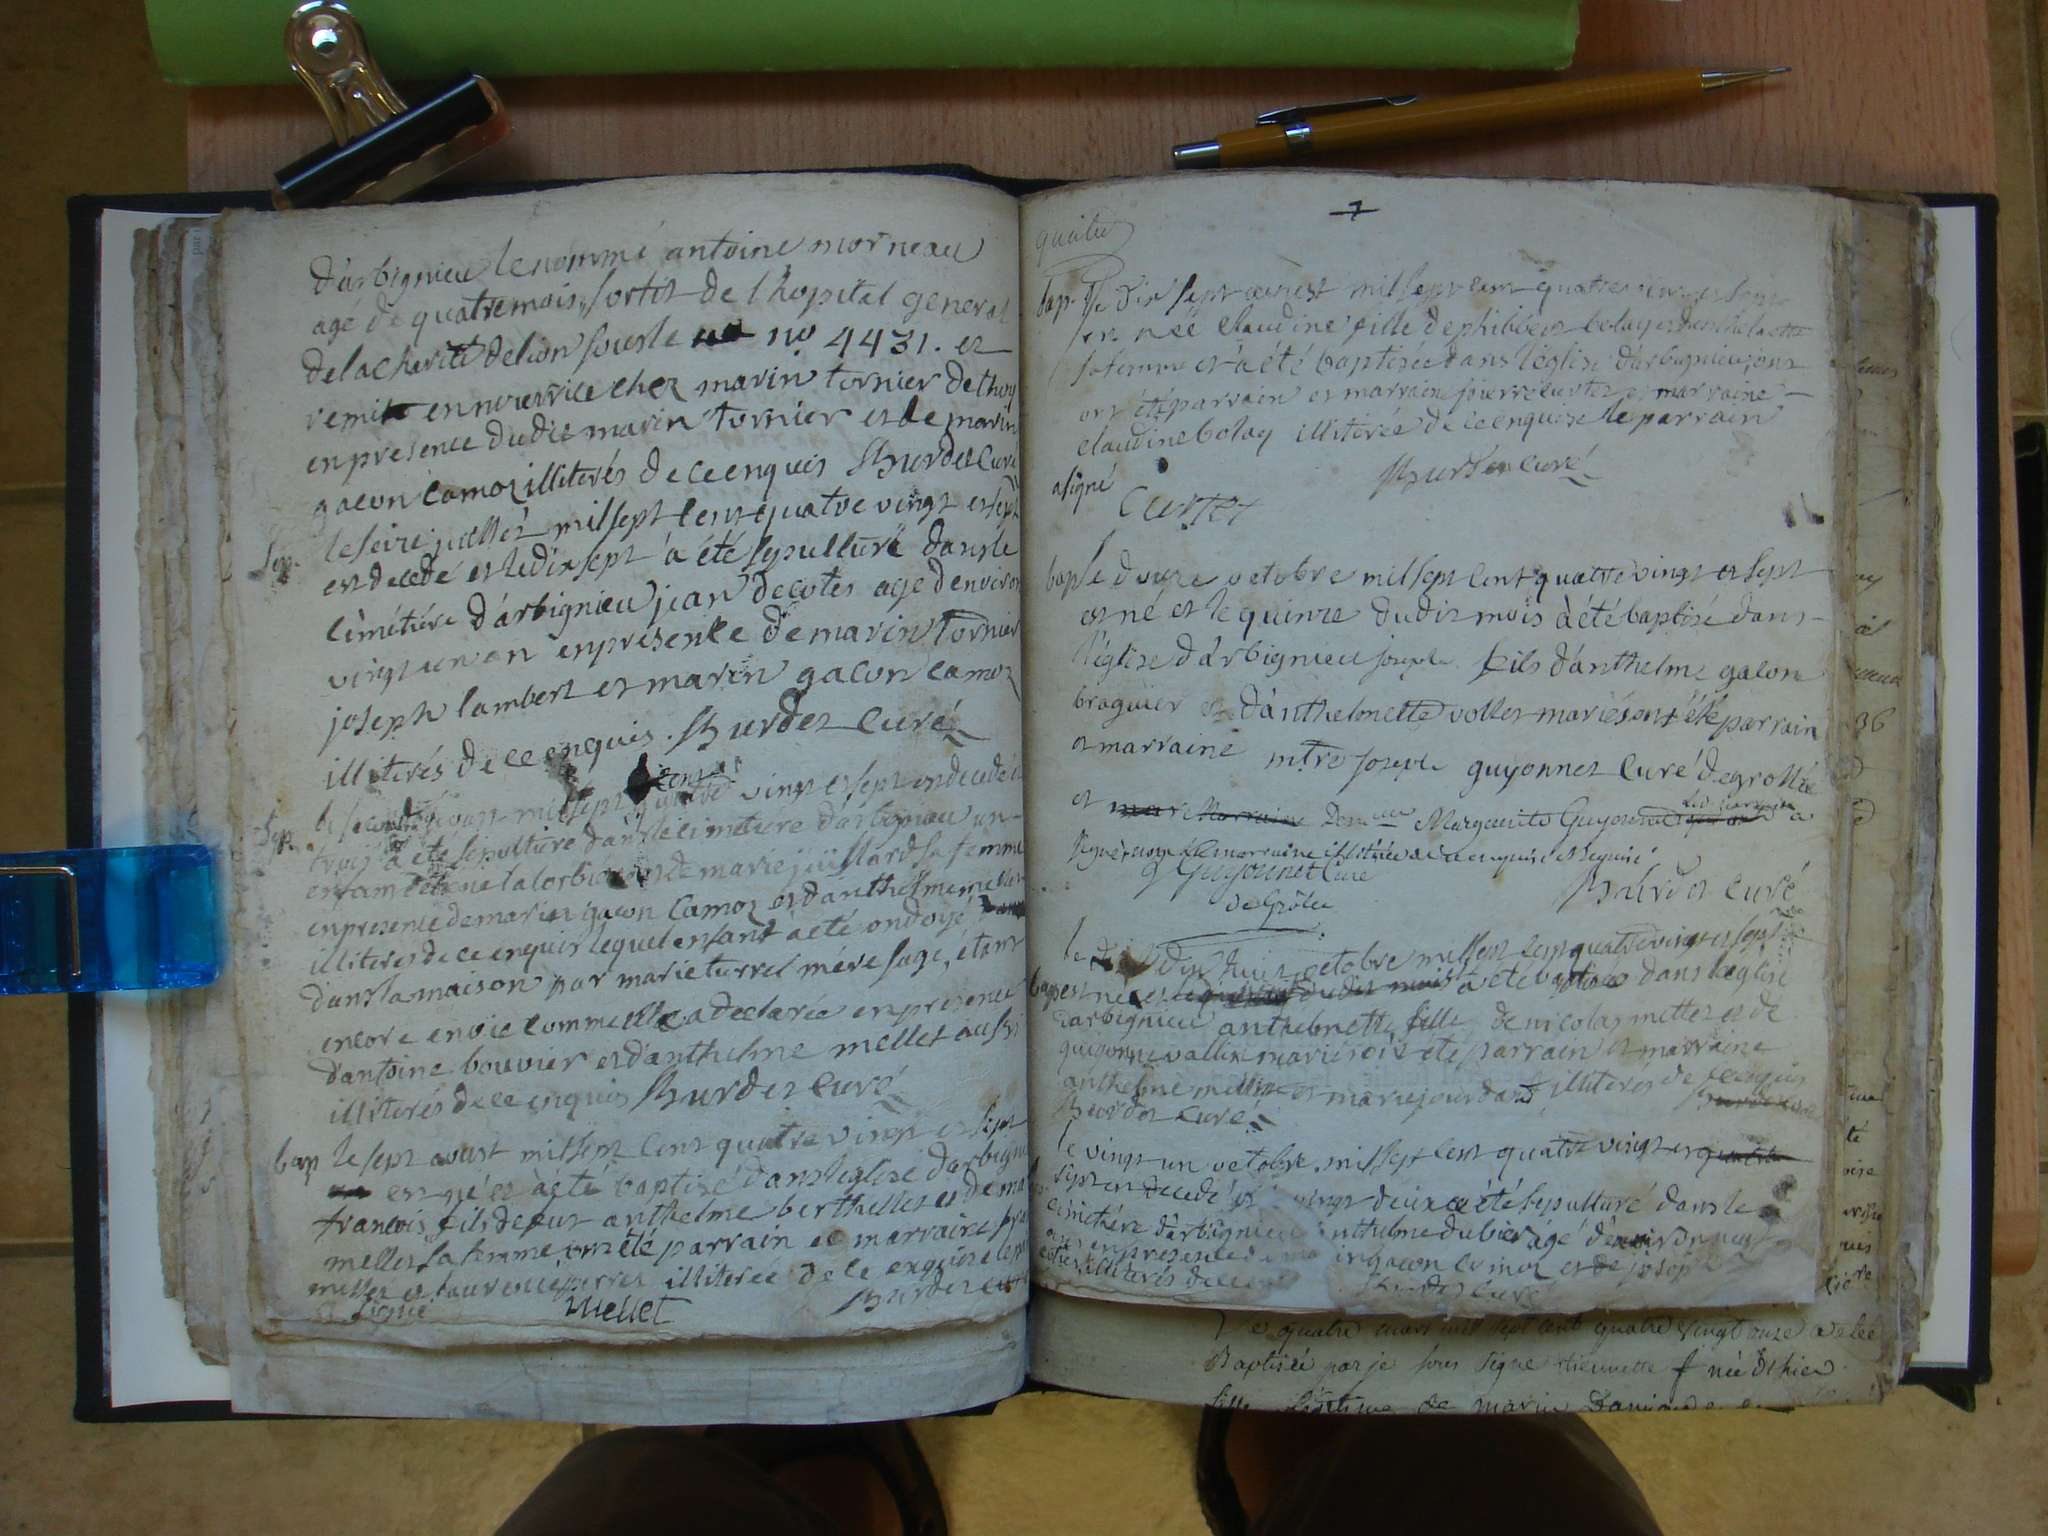 d'arbignieu le nommé antoine morneau
agé de quatre mois, sortit de l'hopital general
de la charité de lion sous le no 4431. et
remit en nourrice chez marin tornier de thoy
en presence dudit marin tornier et de marin
gacon camoz illiterés de ce enquis hurdet curé
Sep. le seize juillet mil sept cent quatre vingt et sept
est decedé et le dix sept a été sepulturé dans le
cimétiére d'arbignieu jean decotes agé d'environ
vingt un an en présence de marin tornier
joseph lambert et marin gacon camoz
illiterés de ce enquis. hurdet curé
Sep. le second aoust mil sept cent quatre vingt et sept est decedé et
trois a été sepulturé dans le cimetiere d'arbignieu un
enfant de et de marie juillard sa femme
en presence de marin gacon camoz et d'anthelme mellet
illiterés de ce enquis lequel enfant a été ondoyé
dans la maison par marie turrel mére sage, étant
encore en vie comme elle a declarée en presence
d'antoine bouvier et d'anthelme mellet aussi
illiterés de ce enquis hurdet curé
bap le sept aoust mil sept cent quatre vingt et sept
est né et a été baptisé dans l'eglise d'arbignieu
francois fils de feut anthelme berthellet et de
mellet sa femme ont été parrain et marraine
mellet et laurence illiterée de ce enquise le
signé mellet hurdet curé
7
quatre
bap. le dix sept aoust mil sept cent quatre vingt et sept
est née claudine fille de philibert bolay et
sa femme et a été baptisée dans l'église d'arbignieu, ont
ont été parrain et marraine pierre curtet et marraine
claudine bolay illiterée de ce enquise le parrain
a signé hurdet curé
Curtet
bap le douze octobre mil sept cent quatre vingt et sept
est né et le quinze dudit mois a été baptisé dans
l'église d'arbignieu joseph fils d'anthelme gacon
braguier et d'anthelmette vollet mariés ont été parrain
et marraine mtre joseph guyonnet curé de grollée
et Marguerite Guyonnet a
signé non la marraine illitérée de ce enquise et requise
Guyonnet Curé hurdet curé
de Grôlée
le dix huit octobre mil sept cent quatre vingt et sept
bap est né et le dudit mois a été baptisée dans l'eglise
d'arbignieu anthelmette fille de nicolas mettet et de
guigonne vallin mariés ont été parrain et marraine
anthelme mellet et marie jourdan illiterés de ce enquis
hurdet curé
le vingt un octobre mil sept cent quatre vingt et quatre
sept est decedé et vingt deux a été sepulturé dans le
cimetiére d'arbignieu anthelme dubier agé d'environ neuf
ans en presence de marin gacon camoz et de joseph
illiterés de ce hurdet curé
Le quatre mars mil sept cent quatre vingt onze a été
Baptisée par je sous signé etiennette f née d'hier
fille légitime de marin